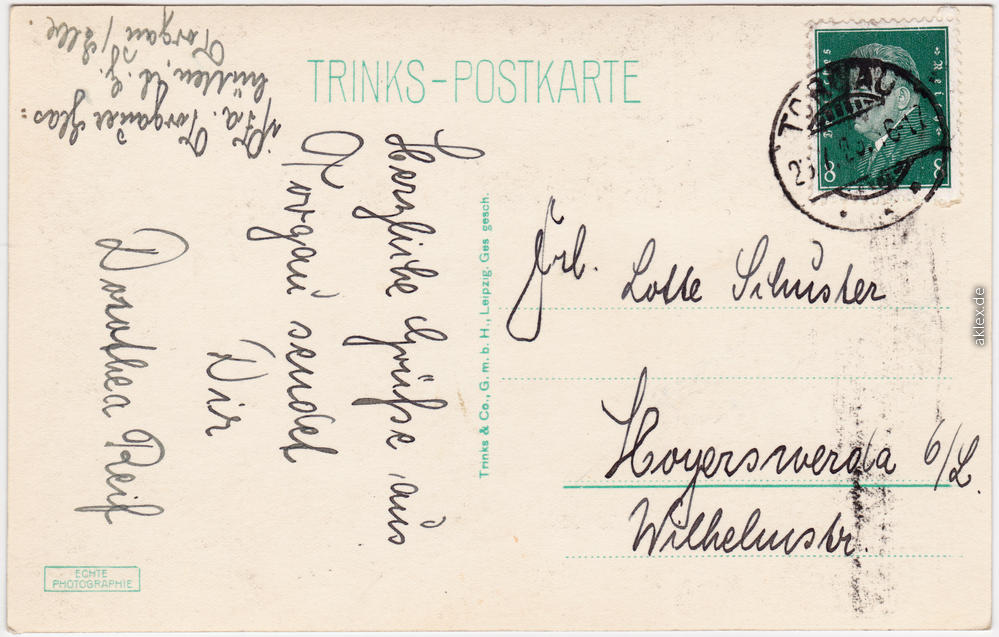 TRINKS-POSTKARTE
Herzliche Grüße aus
Torgau sendet
Dir
Dorothea Reif
i/Fa. Torgauer Glas=
hütten. A. G.
Torgau / Elbe.
Trinks & Co., G. m. b. H., Leipzig. Ges. gesch.
TORGAU
8 8
Frl. Lotte Schuster
Hoyerswerda O/L.
Wilhelmstr.
ECHTE
PHOTOGRAPHIE
aklex.de